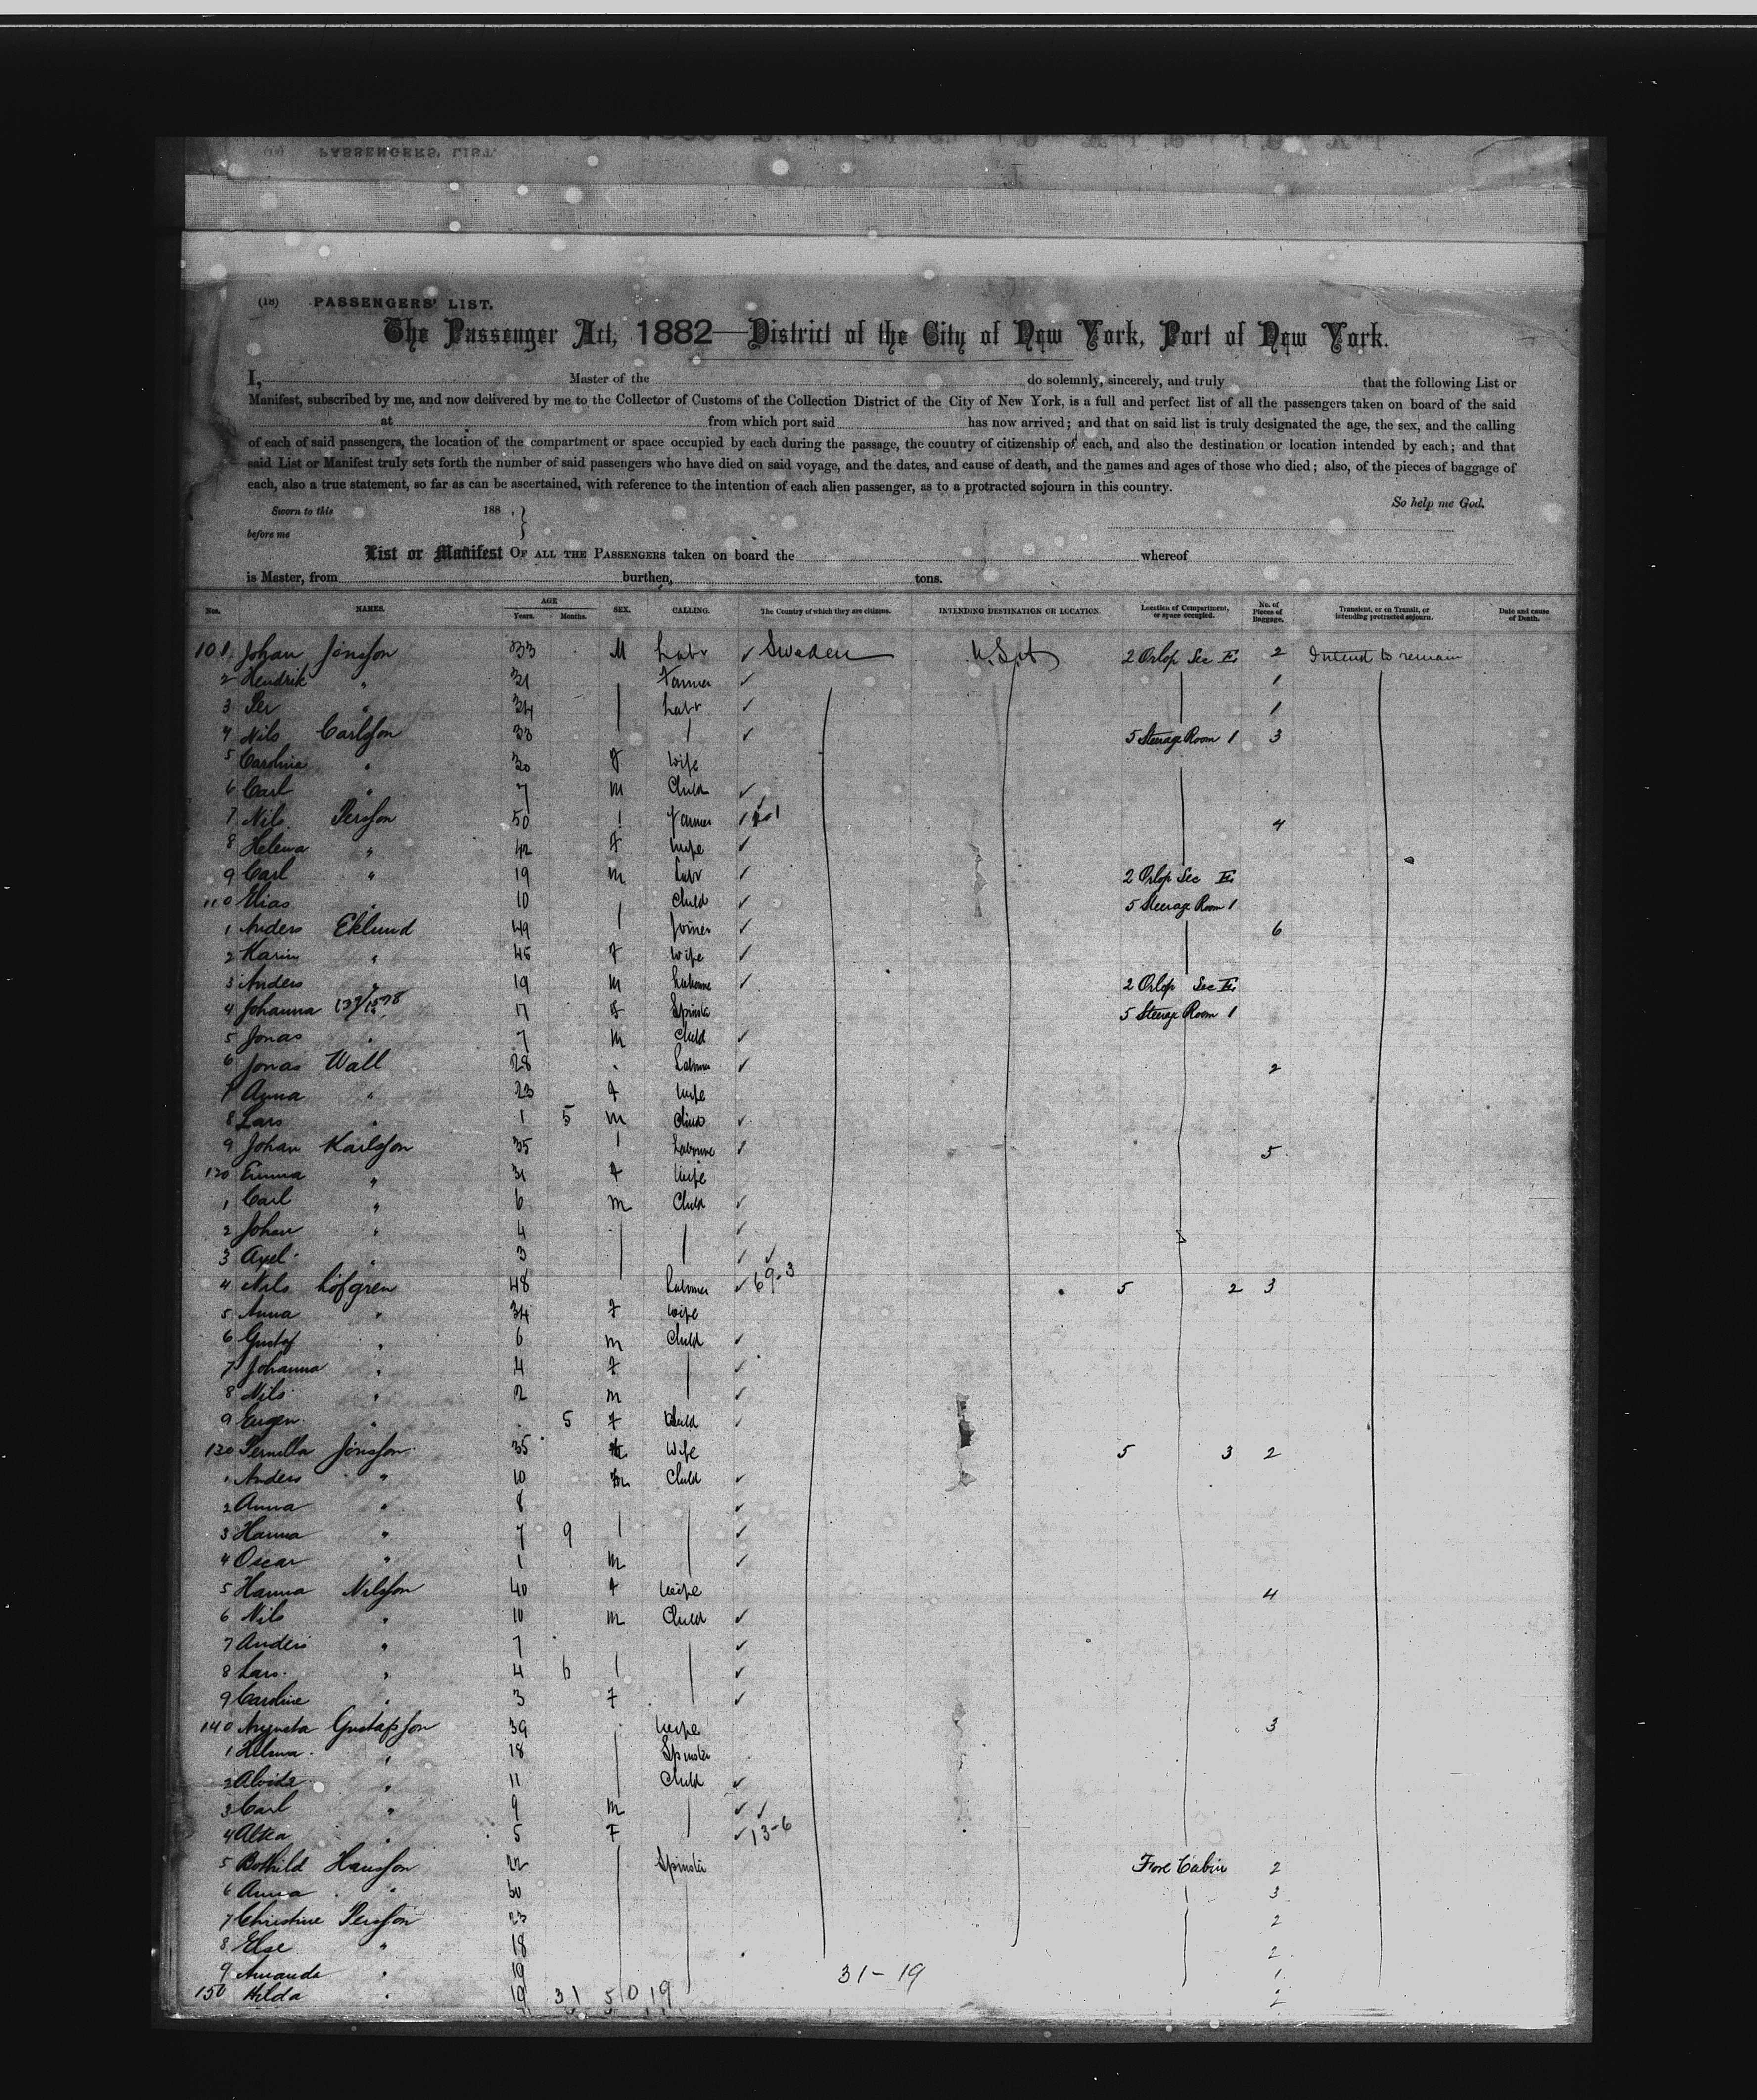 (18) PASSENGERS' LIST.
The Passenger Act, 1882—District of the City of New York, Port of New York.
I, Master of the do solemnly, sincerely, and truly that the following List or
Manifest, subscribed by me, and now delivered by me to the Collector of Customs of the Collection District of the City of New York, is a full and perfect list of all the passengers taken on board of the said
at from which port said has now arrived; and that on said list is truly designated the age, the sex, and the calling
of each of said passengers, the location of the compartment or space occupied by each during the passage, the country of citizenship of each, and also the destination or location intended by each; and that
said List or Manifest truly sets forth the number of said passengers who have died on said voyage, and the dates, and cause of death, and the names and ages of those who died; also, of the pieces of baggage of
each, also a true statement, so far as can be ascertained, with reference to the intention of each alien passenger, as to a protracted sojourn in this country.
So help me God.
Sworn to this 188 .
before me
List or Manifest OF ALL THE PASSENGERS taken on board the whereof
is Master, from burthen, tons.
Nos. NAMES. AGE Years. Months. SEX. CALLING. The Country of which they are citizens. INTENDING DESTINATION OR LOCATION. Location of Compartment, or space occupied. No. of Pieces of Baggage. Transient, or on Transit, or intending protracted sojourn. Date and cause of Death.
101 Johan Jönsson 33 M Labr ✓ Sweden U.S.A 2 Orlop Sec 2 Intend to remain
2 Hendrik " 31 Farmer ✓ 1
3 Per " 34 Labr ✓ 1
4 Nils Carlsson 33 ✓ 5 Steerage Room 1 3
5 Carolina " 30 F Wife
6 Carl " 7 M Child ✓
7 Nils Persson 50 Farmer ✓ 4
8 Helena " 42 F Wife ✓
9 Carl " 19 m Labr ✓ 2 Orlop Sec
110 Elias " 10 Child ✓ 5 Steerage Room 1
1 Anders Eklund 49 Joiner ✓ 6
2 Karin " 45 F Wife ✓
3 Anders " 19 M Labourer ✓ 2 Orlop Sec
4 Johanna 17 F Spinster 5 Steerage Room 1
5 Jonas " 7 M Child ✓
6 Jonas Wall 28 Labourer ✓ 2
7 Anna " 23 F Wife
8 Lars " 1 5 m Child ✓
9 Johan Karlsson 35 Labourer ✓ 5
120 Emma " 31 F Wife
1 Carl " 6 m Child ✓
2 Johan " 4 ✓
3 Axel " 3 ✓ ✓
4 Nils Löfgren 48 Labourer ✓ 69.3 5 2 3
5 Anna " 34 F Wife
6 Gustaf " 6 m Child ✓
7 Johanna " 4 F ✓
8 Nils " 2 m ✓
9 Eugen " 5 F Child ✓
130 Pernilla Jönsson 35 Wife 5 3 2
1 Anders " 10 m Child ✓
2 Anna " 8 ✓
3 Hanna " 7 9 ✓
4 Oscar " 1 M ✓
5 Hanna Nilsson 40 F Wife 4
6 Nils " 10 m Child ✓
7 Anders " 7 ✓
8 Lars " 4 6 ✓
9 Caroline " 3 F ✓
140 Augusta Gustafsson 39 Wife 3
1 Helma " 18 Spinster
2 Alvida " 11 Child ✓
3 Carl " 9 m ✓ ✓
4 " 5 F ✓ 13-6
5 Bothild Hansson 22 Spinster Fore Cabin 2
6 Anna " 30 3
7 Christine Persson 23 2
8 Else " 18 2
9 Amanda " 19 31-19 1
150 Hilda " 19 31 50 19 2